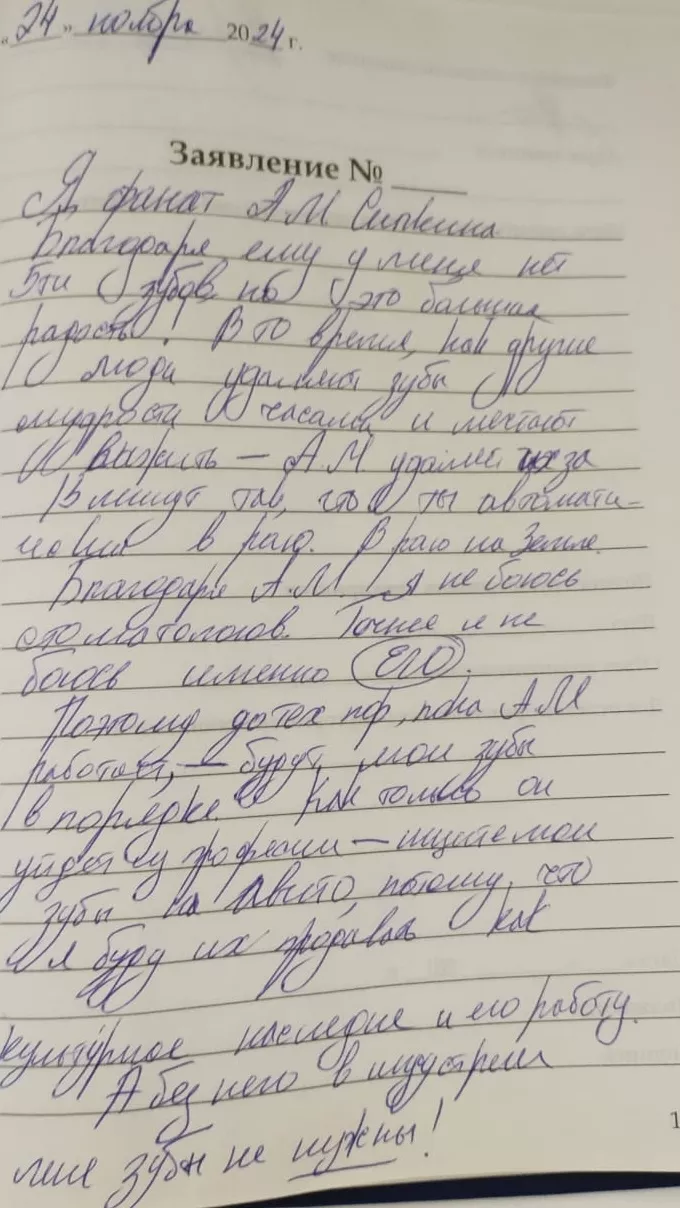 «24» ноября 2024 г.
Заявление № ____
Я фанат А.М Сипкина
Благодаря ему у меня нет
5ти зубов но это большая
радость! В то время, как другие
люди удаляют зубы
мудрости часами и мечтают
выжить – А М удаляет их за
15 минут так, что ты автомати-
чески в раю. В раю на Земле.
Благодаря А.М. я не боюсь
стоматологов. Точнее я не
боюсь именно ЕГО.
Поэтому до тех пор, пока А М
работает, – будут мои зубы
в порядке. Как только он
уйдет из професии – ищите мои
зубы на Авито, потому что
я буду их продавать как
культурное наследие и его работу.
А без него в индустрии
мне зубы не нужны!
1